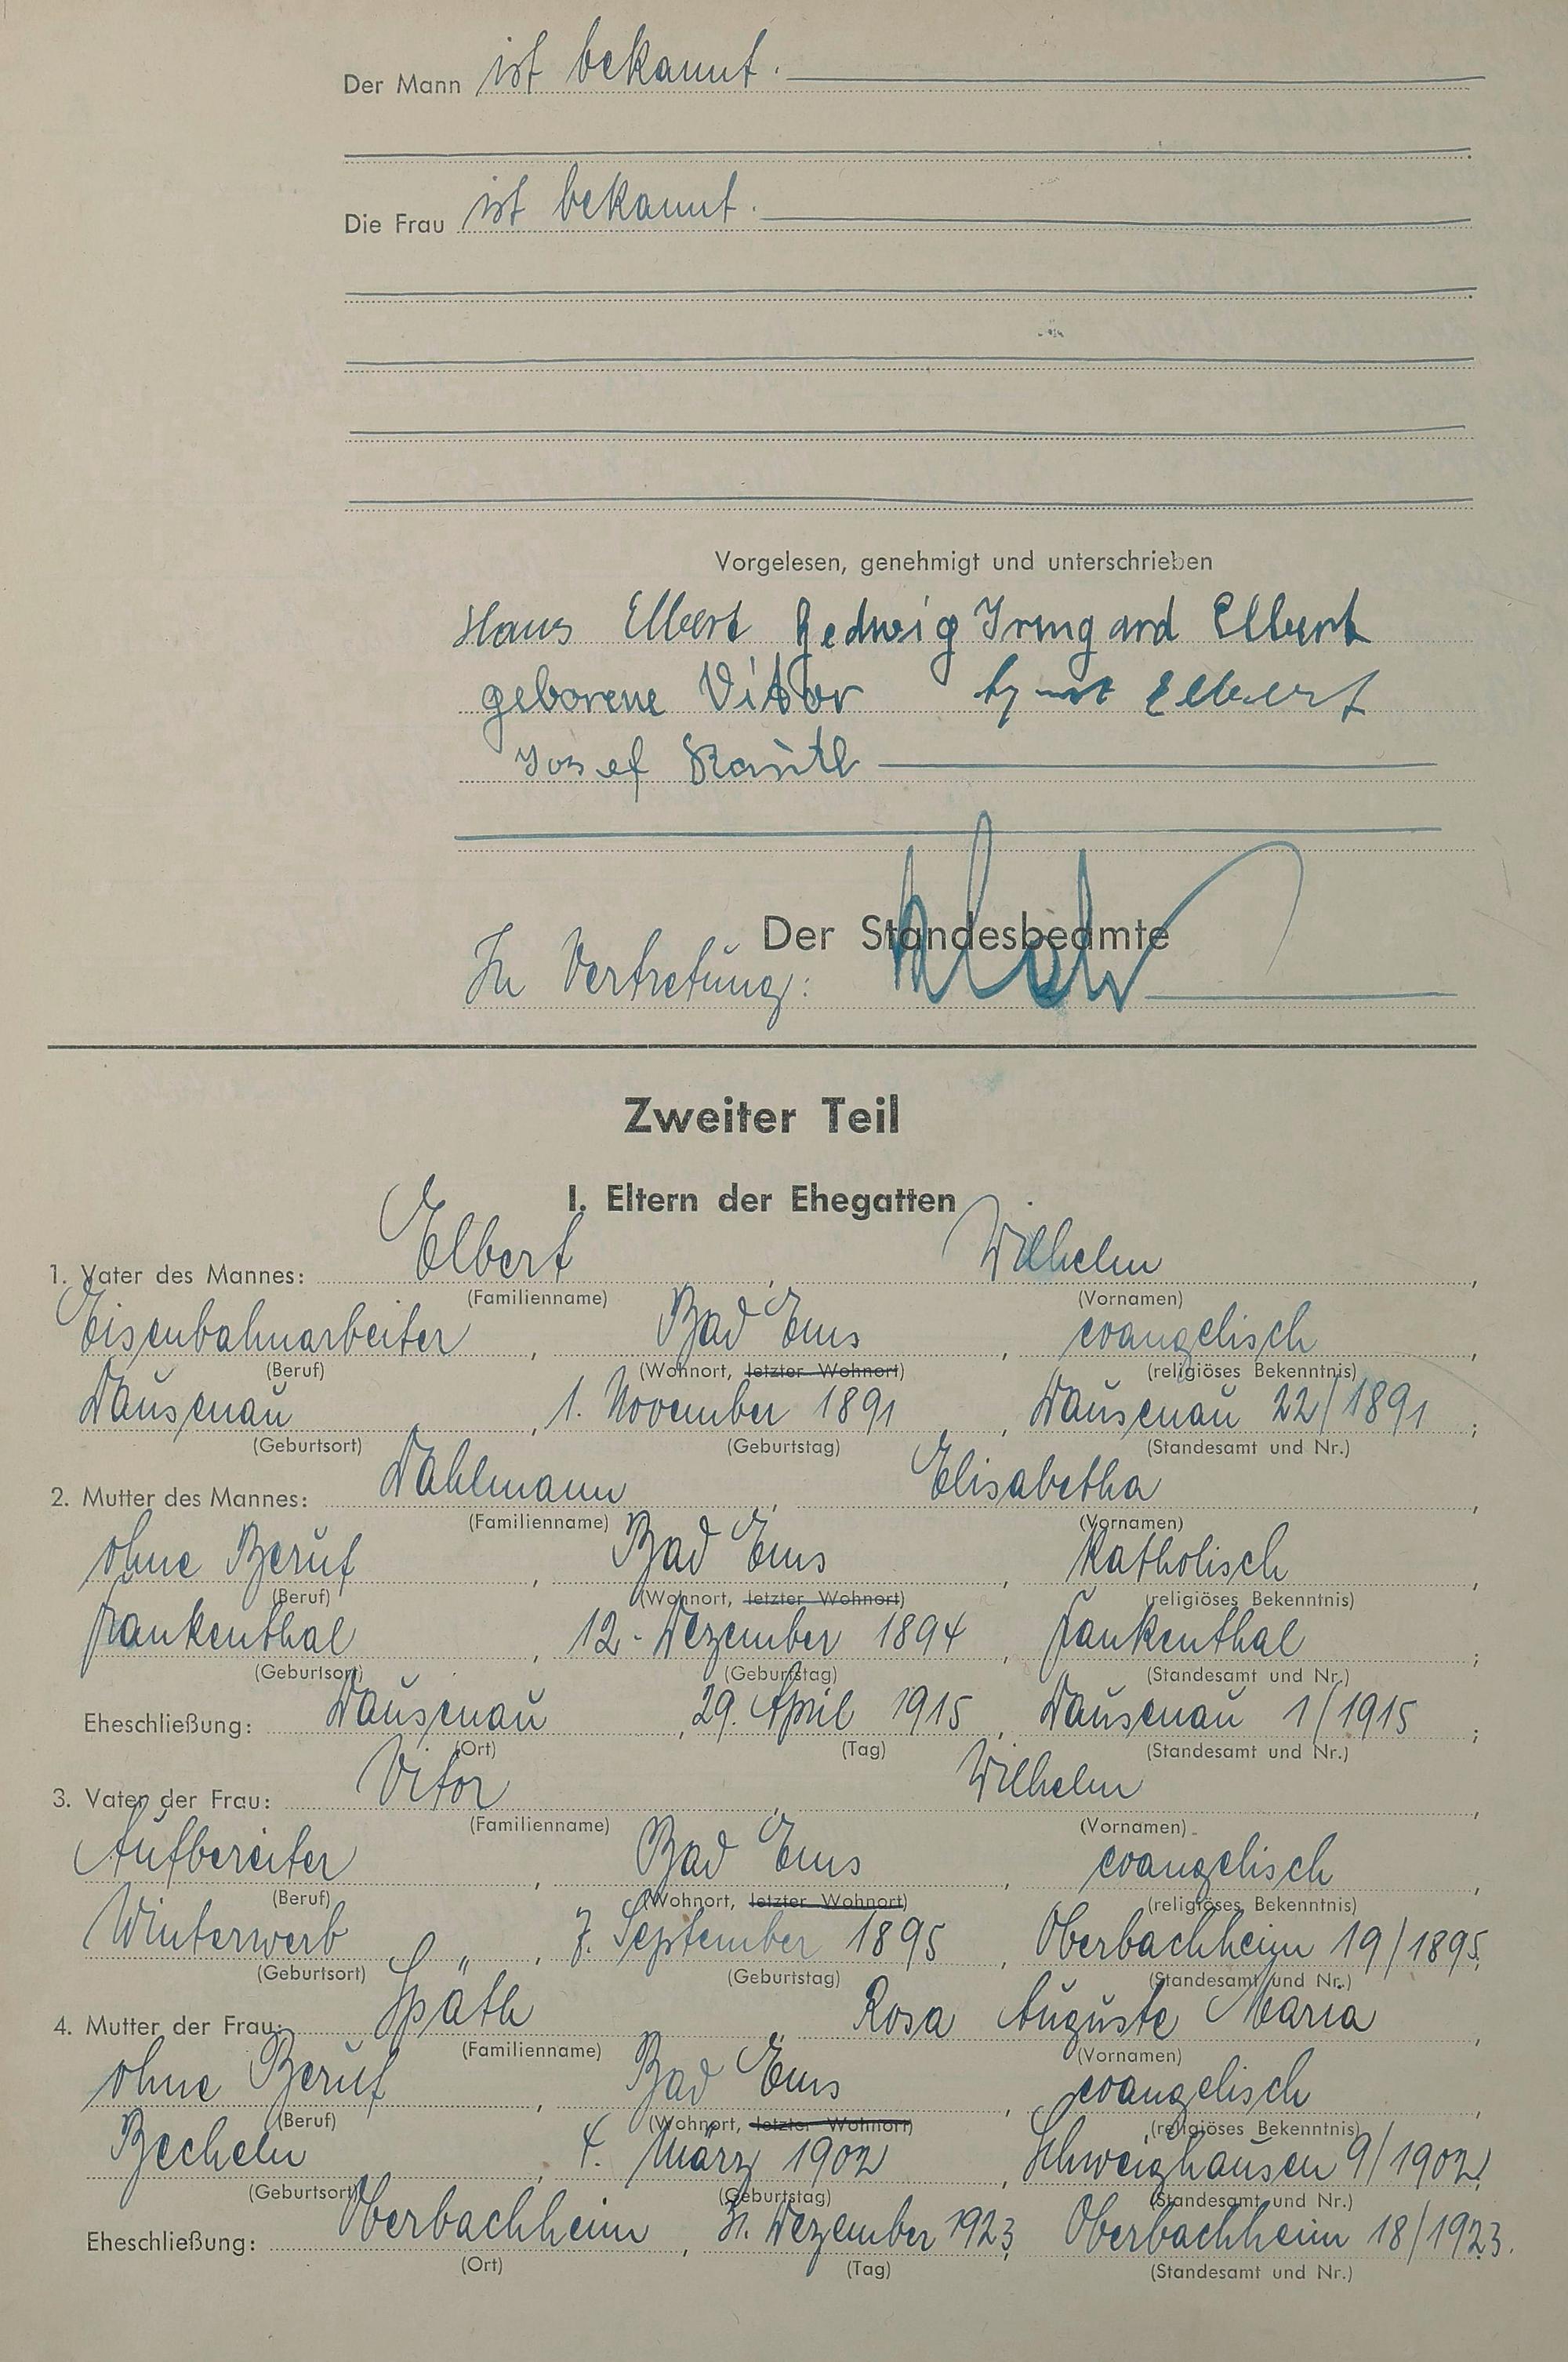 Der Mann ist bekannt.
Die Frau ist bekannt.
Vorgelesen, genehmigt und unterschrieben
Hans Elbert Hedwig Irmgard Elbert
geborene Vitor Elbert
Josef
Der Standesbeamte
In Vertretung:
Zweiter Teil
I. Eltern der Ehegatten
1. Vater des Mannes: Elbert, Wilhelm,
(Familienname) (Vornamen)
Eisenbahnarbeiter, Bad Ems, evangelisch,
(Beruf) (Wohnort, letzter Wohnort) (religiöses Bekenntnis)
Dausenau, 1. November 1891, Dausenau 22/1891;
(Geburtsort) (Geburtstag) (Standesamt und Nr.)
2. Mutter des Mannes: Dahlmann, Elisabetha,
(Familienname) (Vornamen)
ohne Beruf, Bad Ems, katholisch,
(Beruf) (Wohnort, letzter Wohnort) (religiöses Bekenntnis)
Frankenthal, 12. Dezember 1894, Frankenthal;
(Geburtsort) (Geburtstag) (Standesamt und Nr.)
Eheschließung: Dausenau, 29. April 1915, Dausenau 1/1915;
(Ort) (Tag) (Standesamt und Nr.)
3. Vater der Frau: Vitor, Wilhelm,
(Familienname) (Vornamen)
Aufbereiter, Bad Ems, evangelisch,
(Beruf) (Wohnort, letzter Wohnort) (religiöses Bekenntnis)
Winterwerb, 7. September 1895, Oberbachheim 19/1895;
(Geburtsort) (Geburtstag) (Standesamt und Nr.)
4. Mutter der Frau: Späth, Rosa Auguste Maria,
(Familienname) (Vornamen)
ohne Beruf, Bad Ems, evangelisch,
(Beruf) (Wohnort, letzter Wohnort) (religiöses Bekenntnis)
Becheln, 4. März 1902, Schweighausen 9/1902;
(Geburtsort) (Geburtstag) (Standesamt und Nr.)
Eheschließung: Oberbachheim, 31. Dezember 1923, Oberbachheim 18/1923.
(Ort) (Tag) (Standesamt und Nr.)